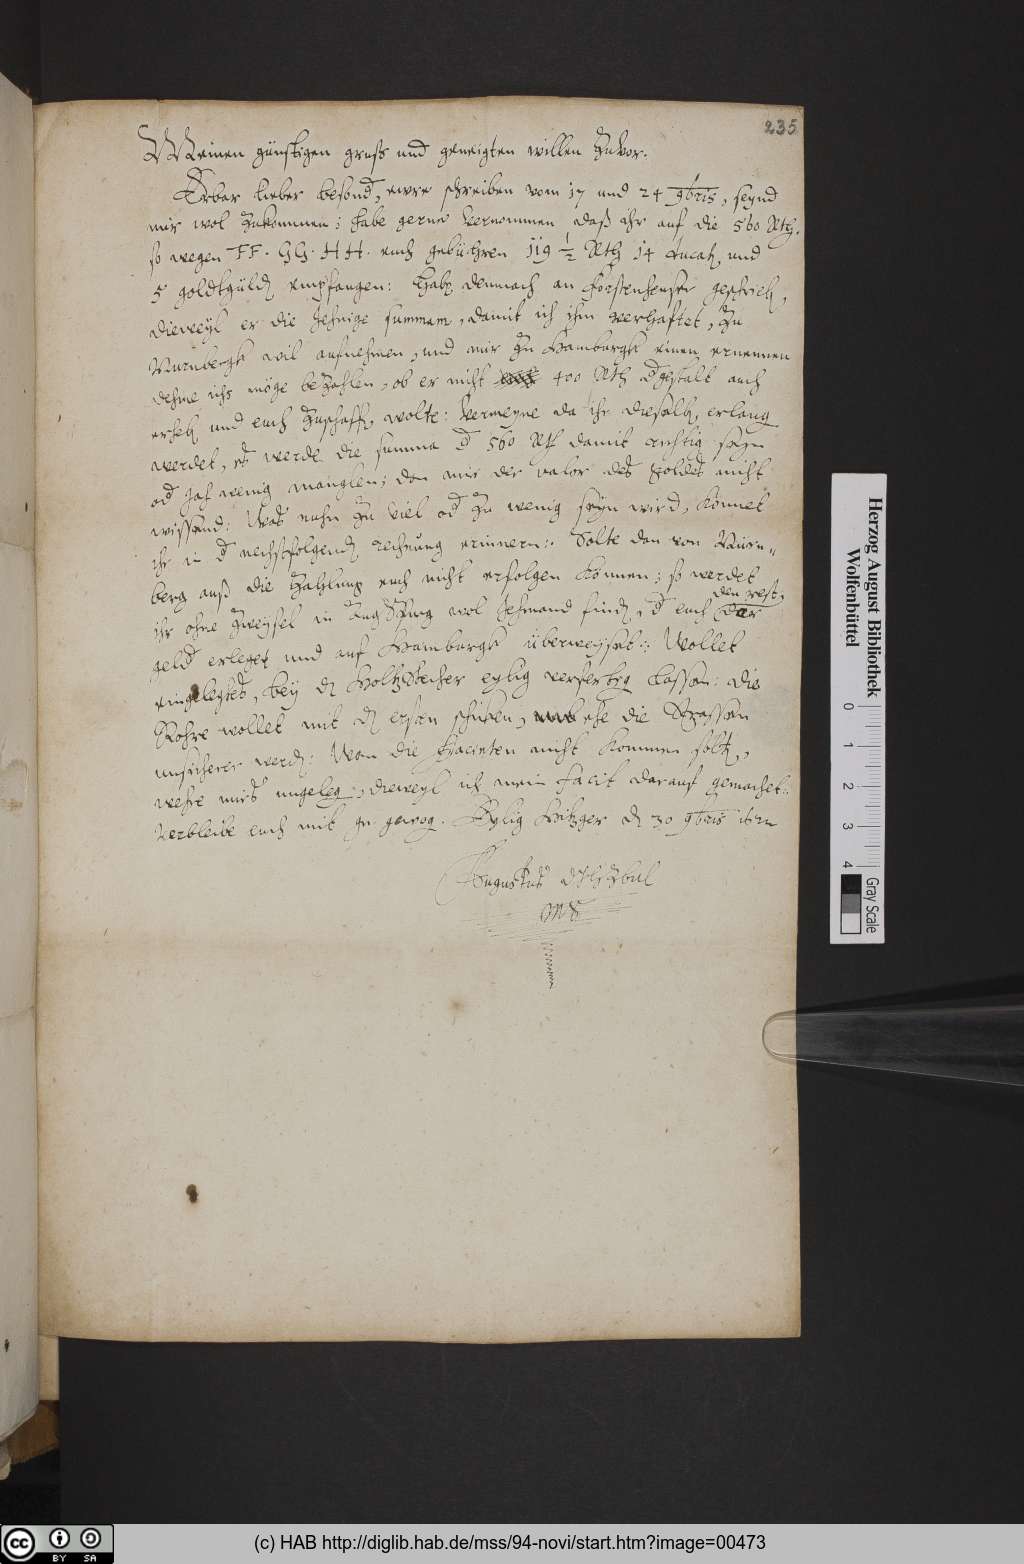 235
Meinen günstigen gruß und geneigten willen zuvor.
Erbar lieber besond, ewre schreiben vom 17 und 24 9bris, seynd
mir wol zukommen; habe gerne vernommen daß ihr auf die 560 Rth.
so wegen FF. GG. HH. euch gebühren 119 1/2 Rth 14 ducat, und
5 goldtgüld empfangen: Hab demnach an Forstenheuser geschrieb,
dieweyl er die Jehnige summam, damit ich ihm verhaftet, zu
Nurnbergk wil aufnehmen, und mir zu Hamburgk einen ernennen
dehme ichs möge bezahlen, ob er nicht 400 Rth dgestalt auch
erheb und euch zuschaff wolte: Vermeyne da ihr diesalb erlang
werdet, es werde die summa d 560 Rth damit richtig seyn
od jah wenig manglen; dan mir der valor des goldes nicht
wissend: Was nuhn zu viel od zu wenig seyn wird, könnet
ihr in d nechstfolgend rechnung erinnern:. Solte dan von Nürn⸗
berg auß die zahlung euch nicht erfolgen können; so werdet
ihr ohne zweyfel in Augspurg wol Jehmand find, d euch den rest,
geld erleget und auf Hamburgk überweyset:. Wollet
eingelegtes, bey d Holtzstecher eylig verfertig lassen: die
Rohre wollet mit d ersten schicken, ehe die Strassen
unsicherer werd: Wan die Hacinten nicht kommen solt,
wehre mirs ungeleg, dieweyl ich mein facit darauf gemachet:.
Verbleibe euch mit gn gewog. Eylig Hitzger d 30 9bris
Augustus